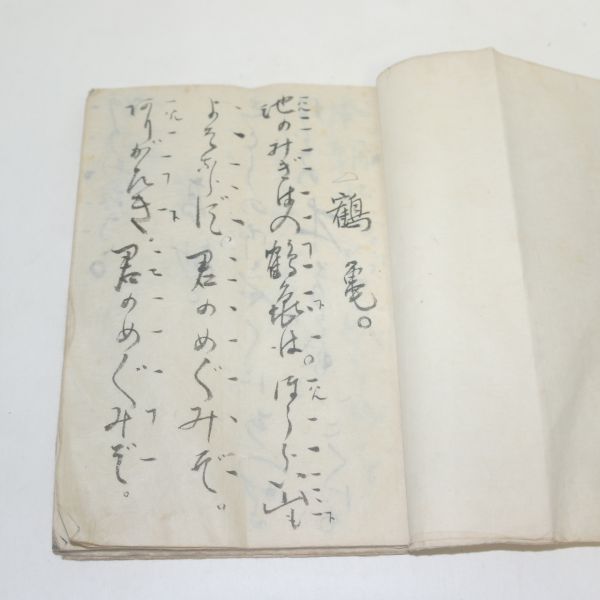 鶴亀。
池のみぎはの鶴亀は。ほうらい山も
よそならず。君のめぐみぞ。
ありがたき。君のめぐみぞ。